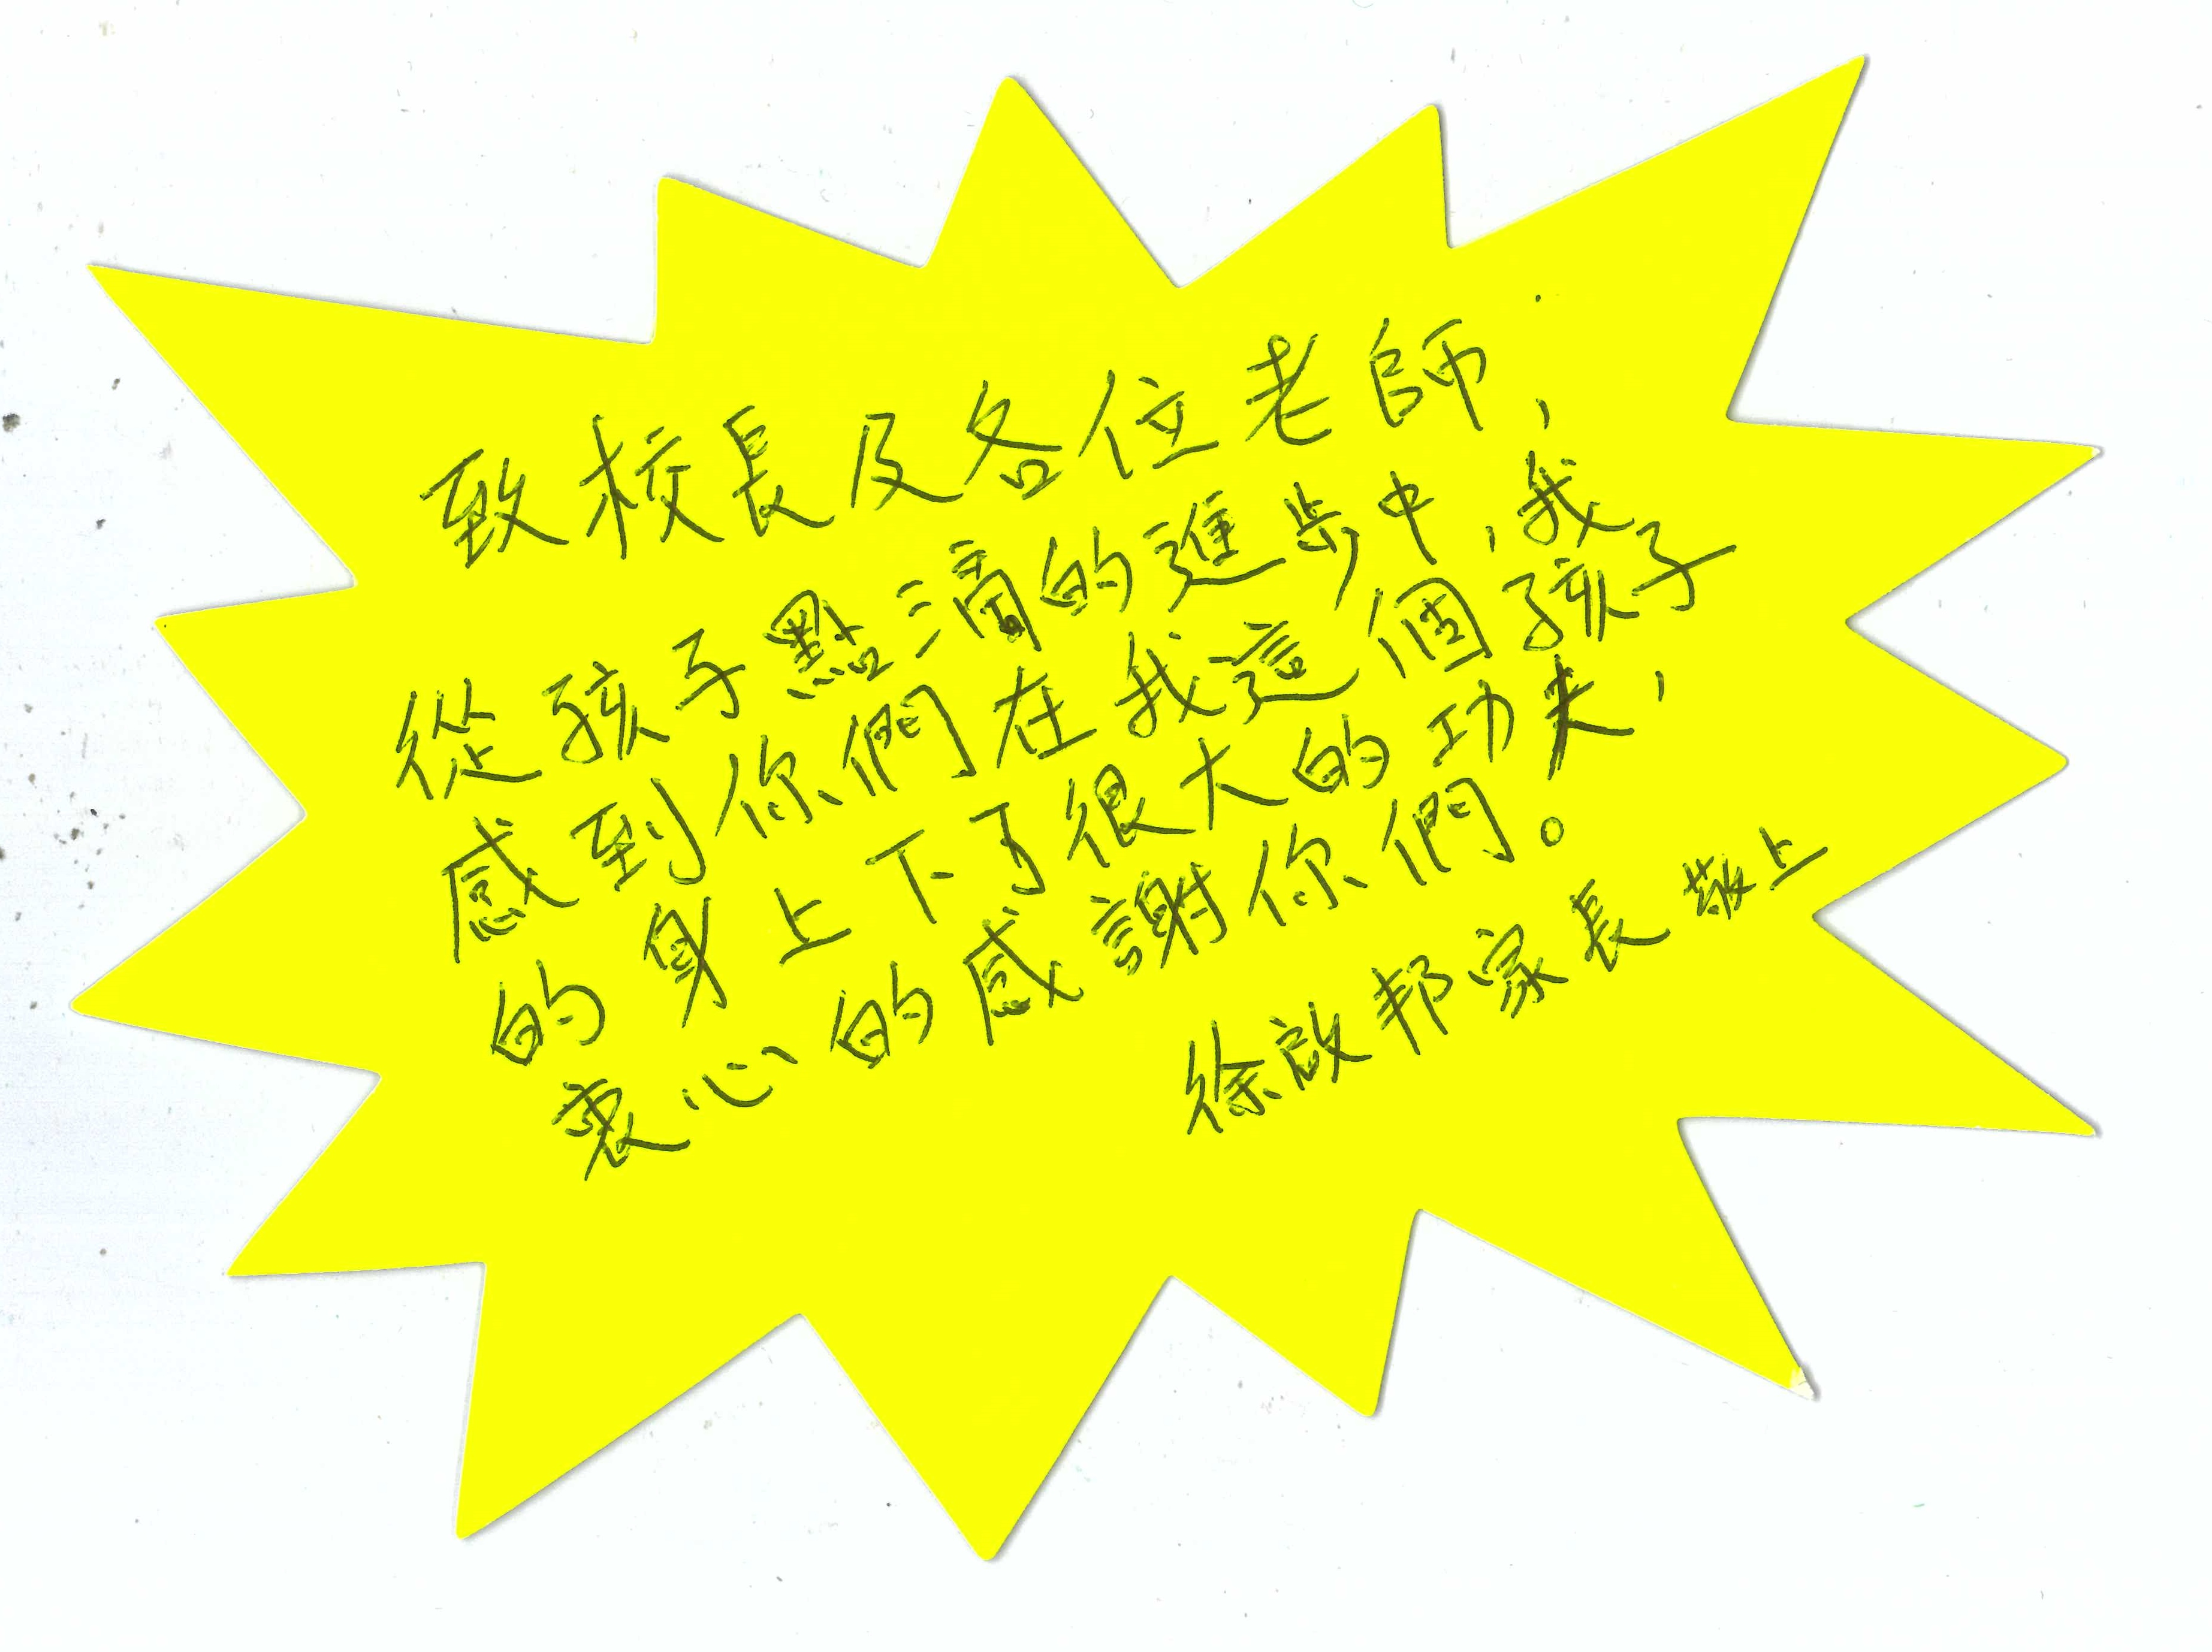 致校長及各位老師，
從孩子點滴的進步中，我
感到你們在我這個孩子
的身上下了很大的功夫，
衷心的感謝你們。
徐啟邦家長 敬上